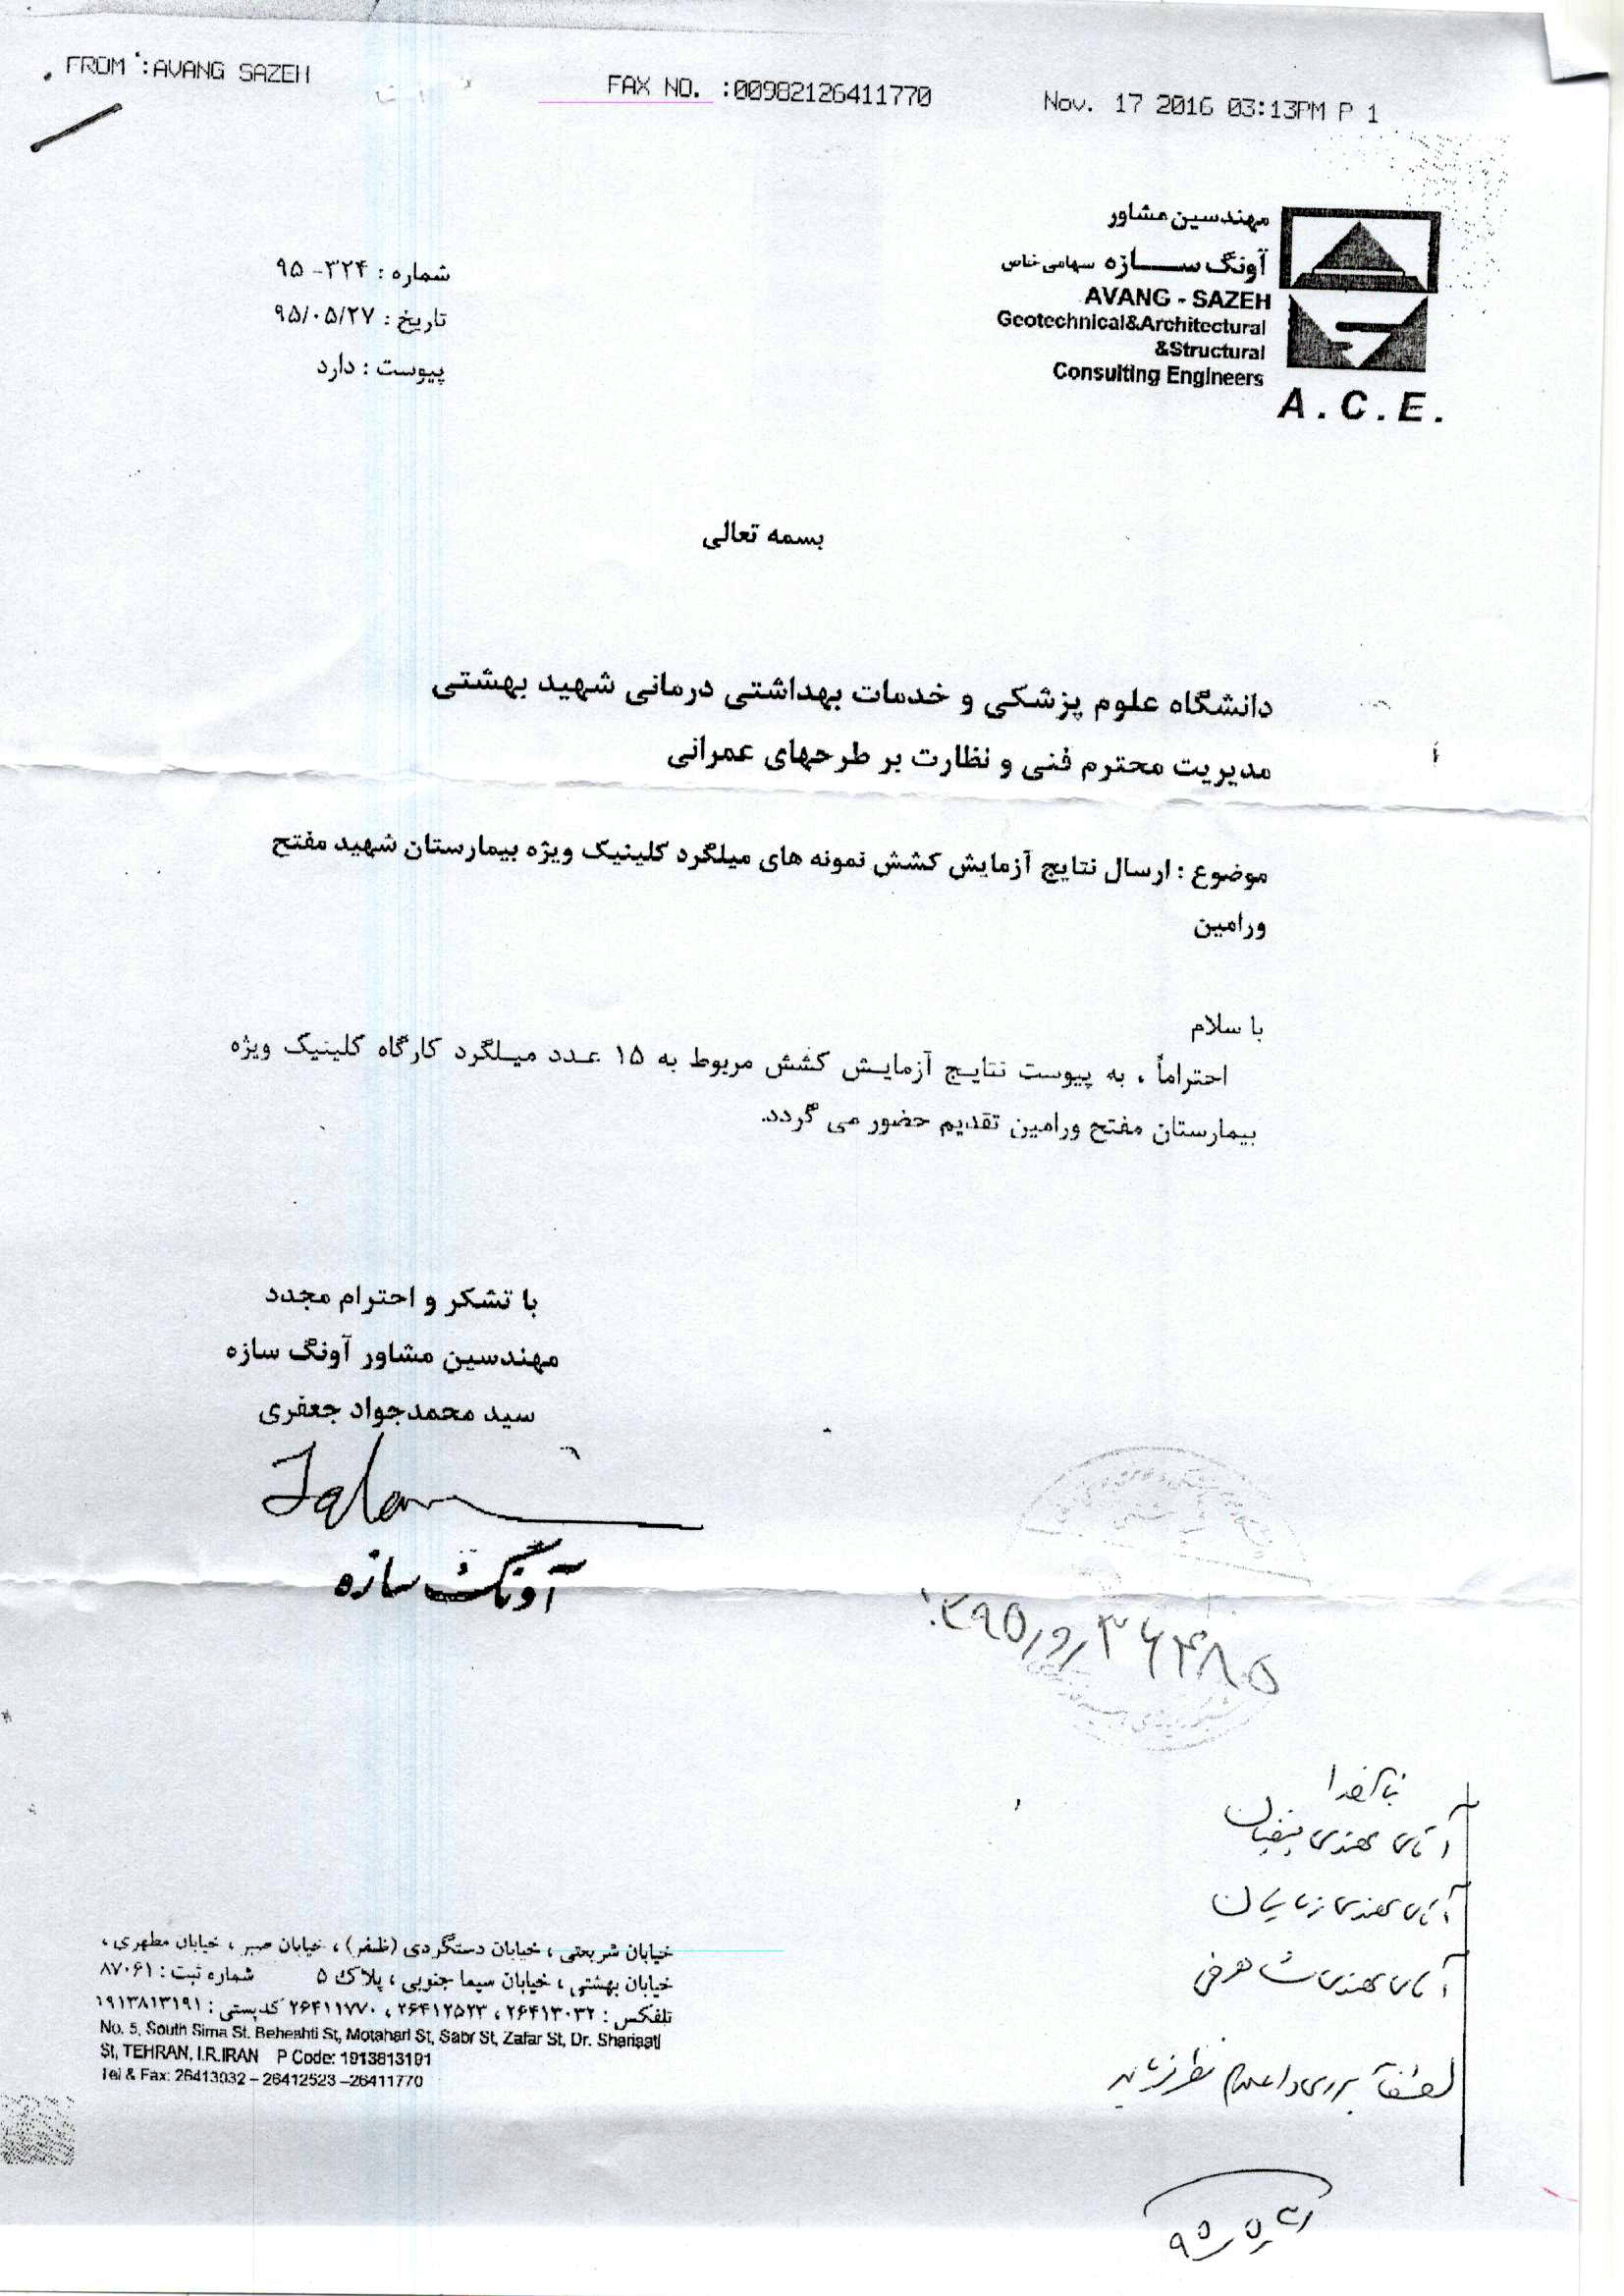 FROM :AVANG SAZEH
FAX NO. :00982126411770
Nov. 17 2016 03:13PM P 1
مهندسین مشاور
آونگ سازه سهامی خاص
AVANG - SAZEH
Geotechnical&Architectural
&Structural
Consulting Engineers
A.C.E.
شماره : ۳۲۴- ۹۵
تاریخ : ۹۵/۰۵/۲۷
پیوست : دارد
بسمه تعالی
دانشگاه علوم پزشکی و خدمات بهداشتی درمانی شهید بهشتی
مدیریت محترم فنی و نظارت بر طرحهای عمرانی
موضوع : ارسال نتایج آزمایش کشش نمونه های میلگرد کلینیک ویژه بیمارستان شهید مفتح
ورامین
با سلام
احتراماً ، به پیوست نتایج آزمایش کشش مربوط به ۱۵ عدد میلگرد کارگاه کلینیک ویژه
بیمارستان مفتح ورامین تقدیم حضور می گردد.
با تشکر و احترام مجدد
مهندسین مشاور آونگ سازه
سید محمدجواد جعفری
آونگ سازه
آقای مهندس
آقای مهندس
آقای مهندس
لطفاً بررسی و اعلام نظر فرمایید
خیابان شریعتی ، خیابان دستگردی (ظفر) ، خیابان صبر ، خیابان مطهری ،
خیابان بهشتی ، خیابان سیما جنوبی ، پلاک ۵ شماره ثبت : ۸۷۰۶۱
تلفکس : ۲۶۴۱۳۰۳۲ ، ۲۶۴۱۲۵۲۳ ، ۲۶۴۱۱۷۷۰ کدپستی : ۱۹۱۳۸۱۳۱۹۱
No. 5, South Sima St. Beheshti St, Motahari St, Sabr St, Zafar St, Dr. Shariaati
St, TEHRAN, I.R.IRAN P Code: 1913813191
Tel & Fax: 26413032 – 26412523 –26411770